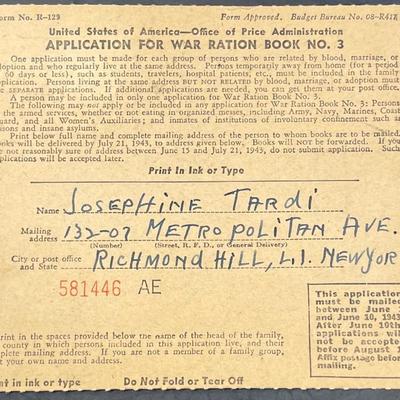 Form No. R-129 Form Approved. Budget Bureau No. 08-R417
United States of America—Office of Price Administration
APPLICATION FOR WAR RATION BOOK NO. 3
One application must be made for each group of persons who are related by blood, marriage, or
adoption and who regularly live at the same address. Persons temporarily away from home (for a period of
60 days or less), such as students, travelers, hospital patients, etc., must be included in the family
application. Persons not related by blood, marriage, or adoption, even though living at the same address, must
SEPARATE applications. If additional applications are needed, you can get them at your post office.
A person may be included in only one application for War Ration Book No. 3.
The following may not apply or be included in any application for War Ration Book No. 3: Persons
the armed services, whether or not eating in organized messes, including Army, Navy, Marines, Coast
uard, and all Women's Auxiliaries; and inmates of institutions of involuntary confinement such as
isons and insane asylums.
Print below full name and complete mailing address of the person to whom books are to be mailed.
ooks will be delivered by July 21, 1943. Books WILL NOT be forwarded. If you
e not reasonably sure of address between June 15 and July 21, 1943, do not submit application. Such
plications will be accepted later.
Print in Ink or Type
Name JOSEPHINE TARDI
Mailing address 132-07 METROPOLITAN AVE.
(Number) (Street, R. F. D., or General Delivery)
City or post office and State RICHMOND HILL, L.I. NEWYOR
581446 AE
This application
must be mailed
between June 1
and June 10, 1943
After June 10th
applications will
not be accepted
before August 1
Affix postage before
mailing
print in the spaces provided below the name of the head of the family,
in this application live, and the
mplete mailing address. If you are not a member of a family group,
own name and address.
int in ink or type Do Not Fold or Tear Off